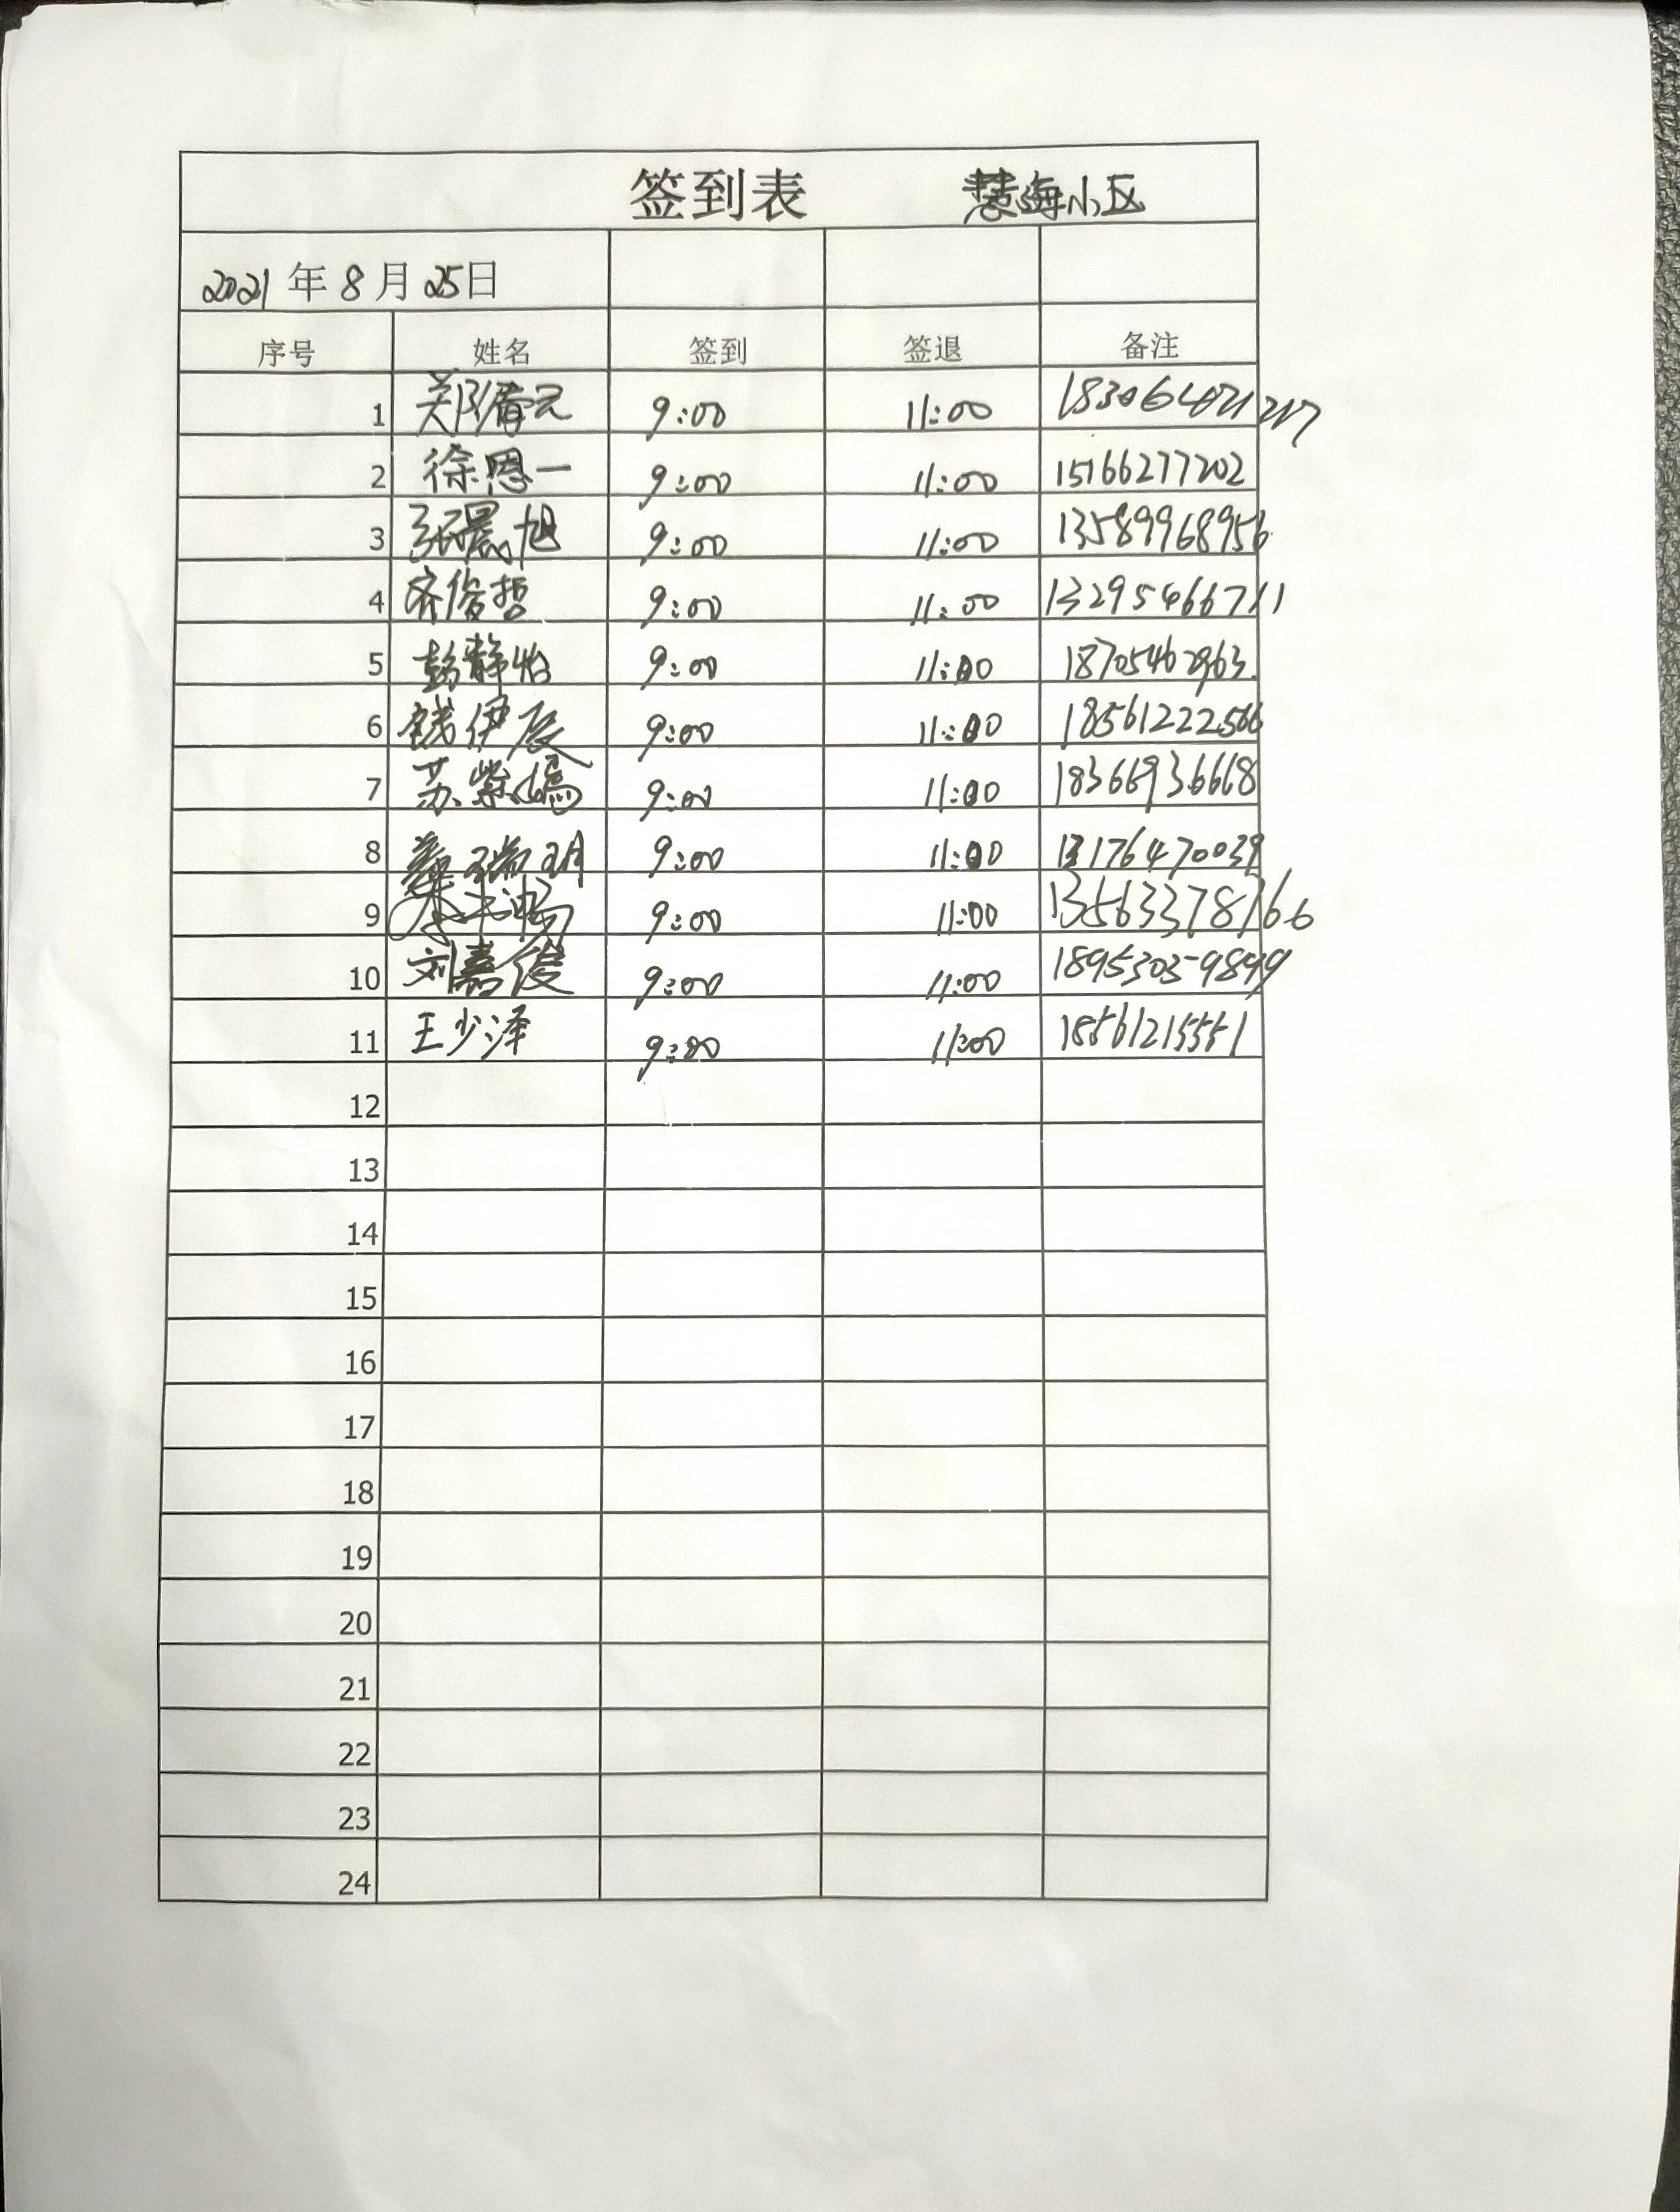 签到表 慧海小区
2021年8月25日
序号 姓名 签到 签退 备注
1 郑偤元 9:00 11:00
2 徐恩一 9:00 11:00 15166277202
3 张晨旭 9:00 11:00 13589968956
4 齐俊哲 9:00 11:00 13295466711
5 彭静怡 9:00 11:00 18705462963
6 钱伊辰 9:00 11:00 18561222566
7 苏紫嫣 9:00 11:00 18366936668
8 瑞玥 9:00 11:00 13176470039
9 9:00 11:00 13563378766
10 刘嘉俊 9:00 11:00 18953059849
11 王少泽 9:00 11:00 18561215551
12
13
14
15
16
17
18
19
20
21
22
23
24